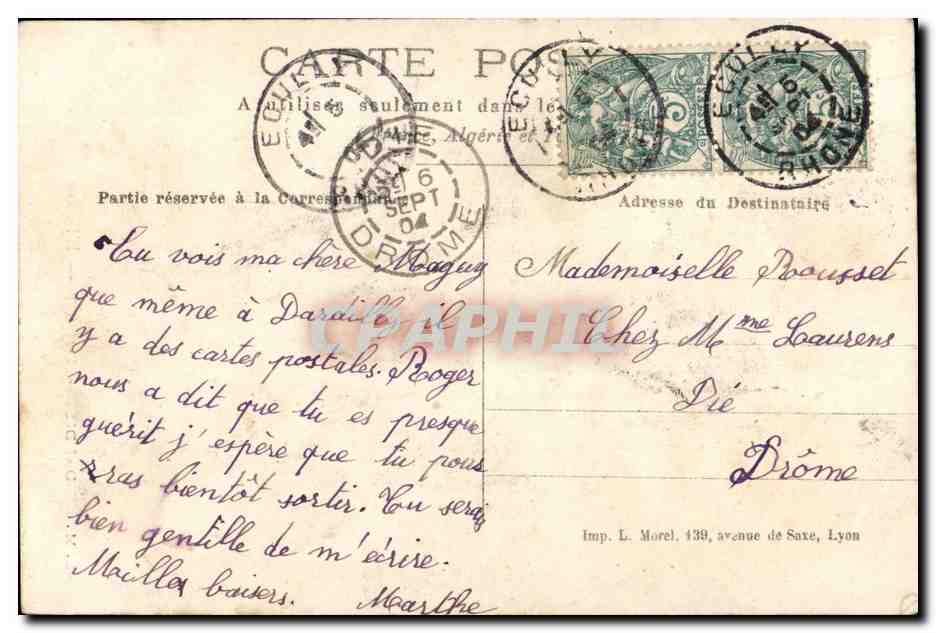 CARTE POS
A utiliser seulement dans le
France, Algérie et
Partie réservée à la Correspondan
Adresse du Destinataire
ECULLY
ECULLY
ECULLY
RHONE
DIE
6
SEPT
04
DROME
Tu vois ma chère Maguy
que même à Dardilly il
y a des cartes postales. Roger
nous a dit que tu es presque
guérit j'espère que tu pour
ras bientôt sortir. Tu serais
bien gentille de m'écrire.
Mailles baisers. Marthe
Mademoiselle Rousset
Chez Mme Laurens
Die
Drôme
Imp. L. Morel, 139, avenue de Saxe, Lyon
CPAPHIL